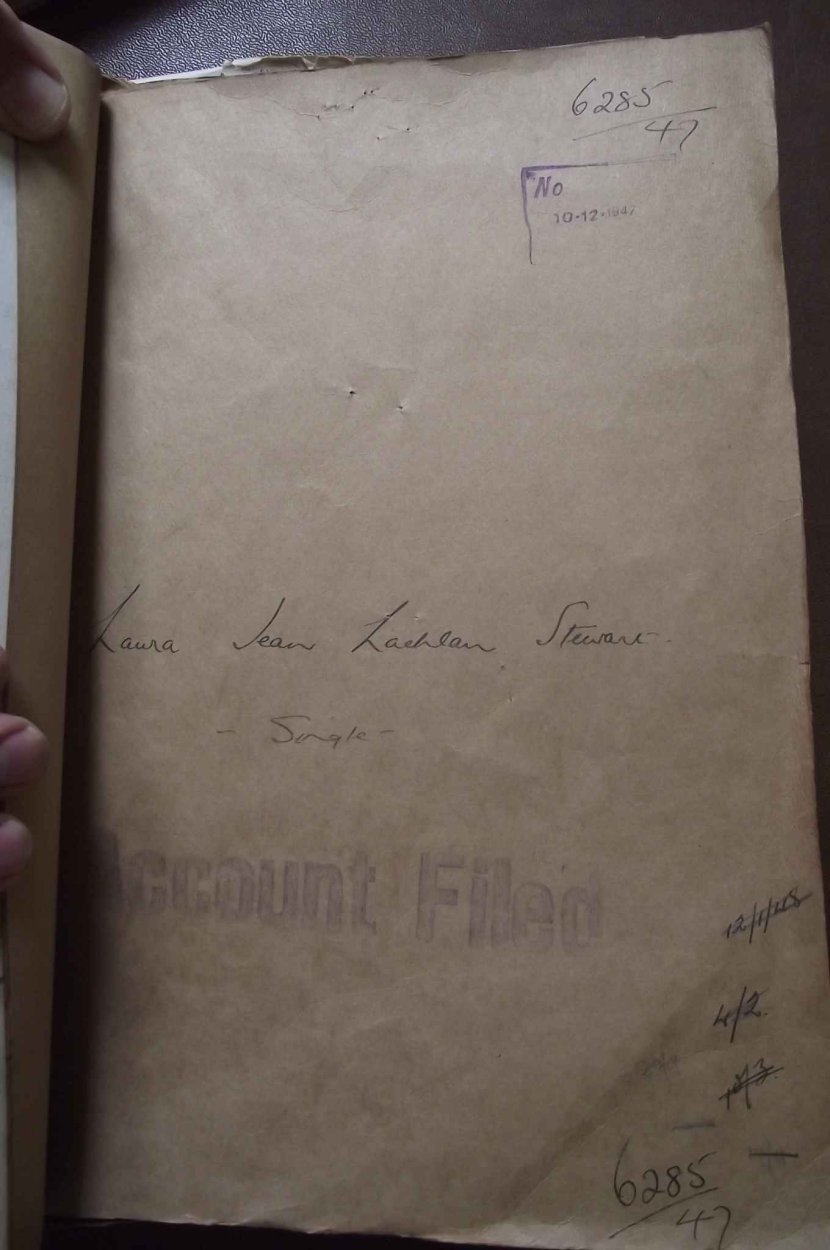 6285
47
No
10·12·1947
Laura Jean Lachlan Stewart.
- Single -
Account Filed
12/1/48
4/2.
6285
47